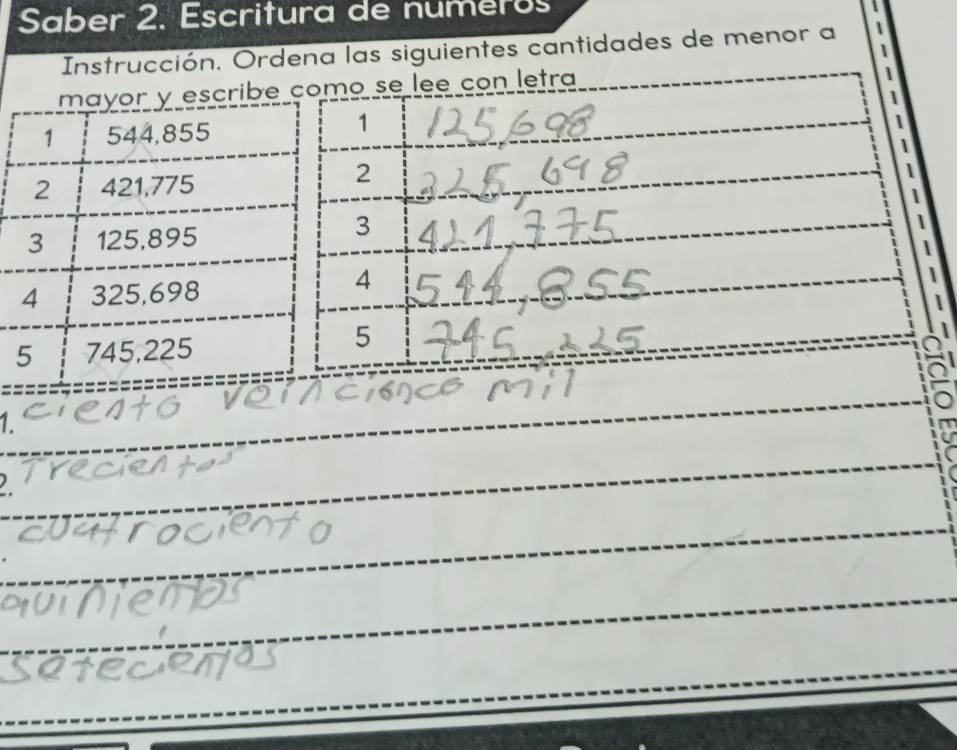 Saber 2. Escritura de números
Instrucción. Ordena las siguientes cantidades de menor a
mayor y escribe como se lee con letra
1 544,855
2 421,775
3 125,895
4 325,698
5 745,225
1 125,698
2 325,698
3 421,775
4 544,855
5 745,225
CICLO ESCO
1. ciento veincionco mil
2. Trecientos
cuatrociento
quinientos
setecientos